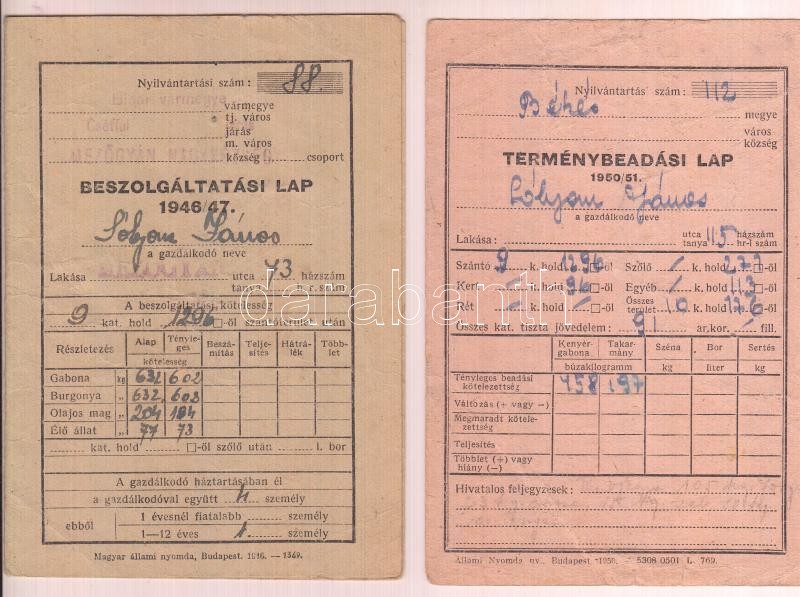 Nyilvántartási szám: 88.
Bihar vármegye
vármegye
tj. város
járás
m. város
község csoport
BESZOLGÁLTATÁSI LAP
1946/47.
Sólyom János
a gazdálkodó neve
Lakása utca 73 házszám
tanya hr. szám
A beszolgáltatási kötelesség
9 kat. hold 1296 □-öl szántóterület után
Részletezés Alap Tényleges Beszámítás Teljesítés Hátrálék Többlet
kötelesség
Gabona kg 632 602
Burgonya „ 632 602
Olajos mag „ 204 194
Élő állat „ 77 73
kat. hold □-öl szőlő után l. bor
A gazdálkodó háztartásában él
a gazdálkodóval együtt 4 személy
ebből 1 évesnél fiatalabb személy
1—12 éves 1 személy
Magyar állami nyomda, Budapest. 1946. — 1349.
Nyilvántartás' szám: 112
Békés megye
város
község
TERMÉNYBEADÁSI LAP
1950/51.
Sólyom János
a gazdálkodó neve
Lakása: utca 115 házszám
tanya hr-i szám
Szántó 9 k. hold 1296 □-öl Szőlő / k. hold 272 □-öl
Kert / k. hold 96 □-öl Egyéb / k. hold 113 □-öl
Rét / k. hold / □-öl Összes terület 10 k. hold 176 □-öl
Összes kat. tiszta jövedelem: 91 ar. kor. — fill.
Kenyérgabona Takarmány Széna Bor Sertés
búzakilogramm kg liter kg
Tényleges beadási kötelezettség 458 197
Változás (+ vagy —)
Megmaradt kötelezettség
Teljesítés
Többlet (+) vagy hiány (—)
Hivatalos feljegyzések:
Állami Nyomda nv., Budapest 1950. — 5308 0501 L. 769.
darabanth